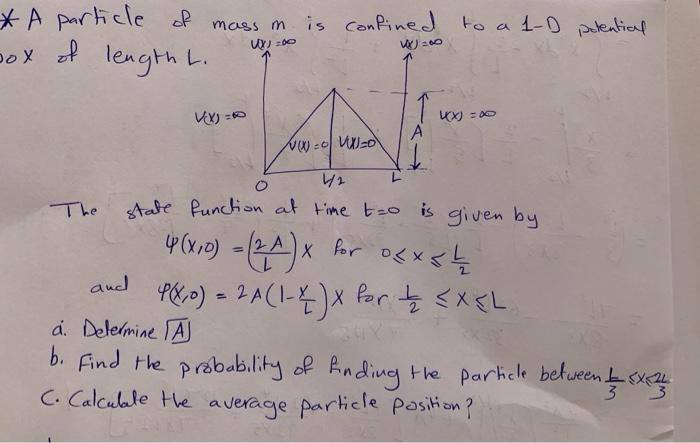 * A particle of mass m is confined to a 1-D potential
box of length L.
V(X)=∞ V(X)=∞
V(X)=∞ V(X)=0 V(X)=0 A V(X)=∞
0 L/2 L
The state function at time t=0 is given by
Ψ(X,0) = (2A/L) X for 0≤X≤L/2
and Ψ(X,0) = 2A(1-X/L) X for L/2 ≤X≤L
a. Determine |A|
b. Find the probability of finding the particle between L/3 ≤X≤2L/3
C. Calculate the average particle position?